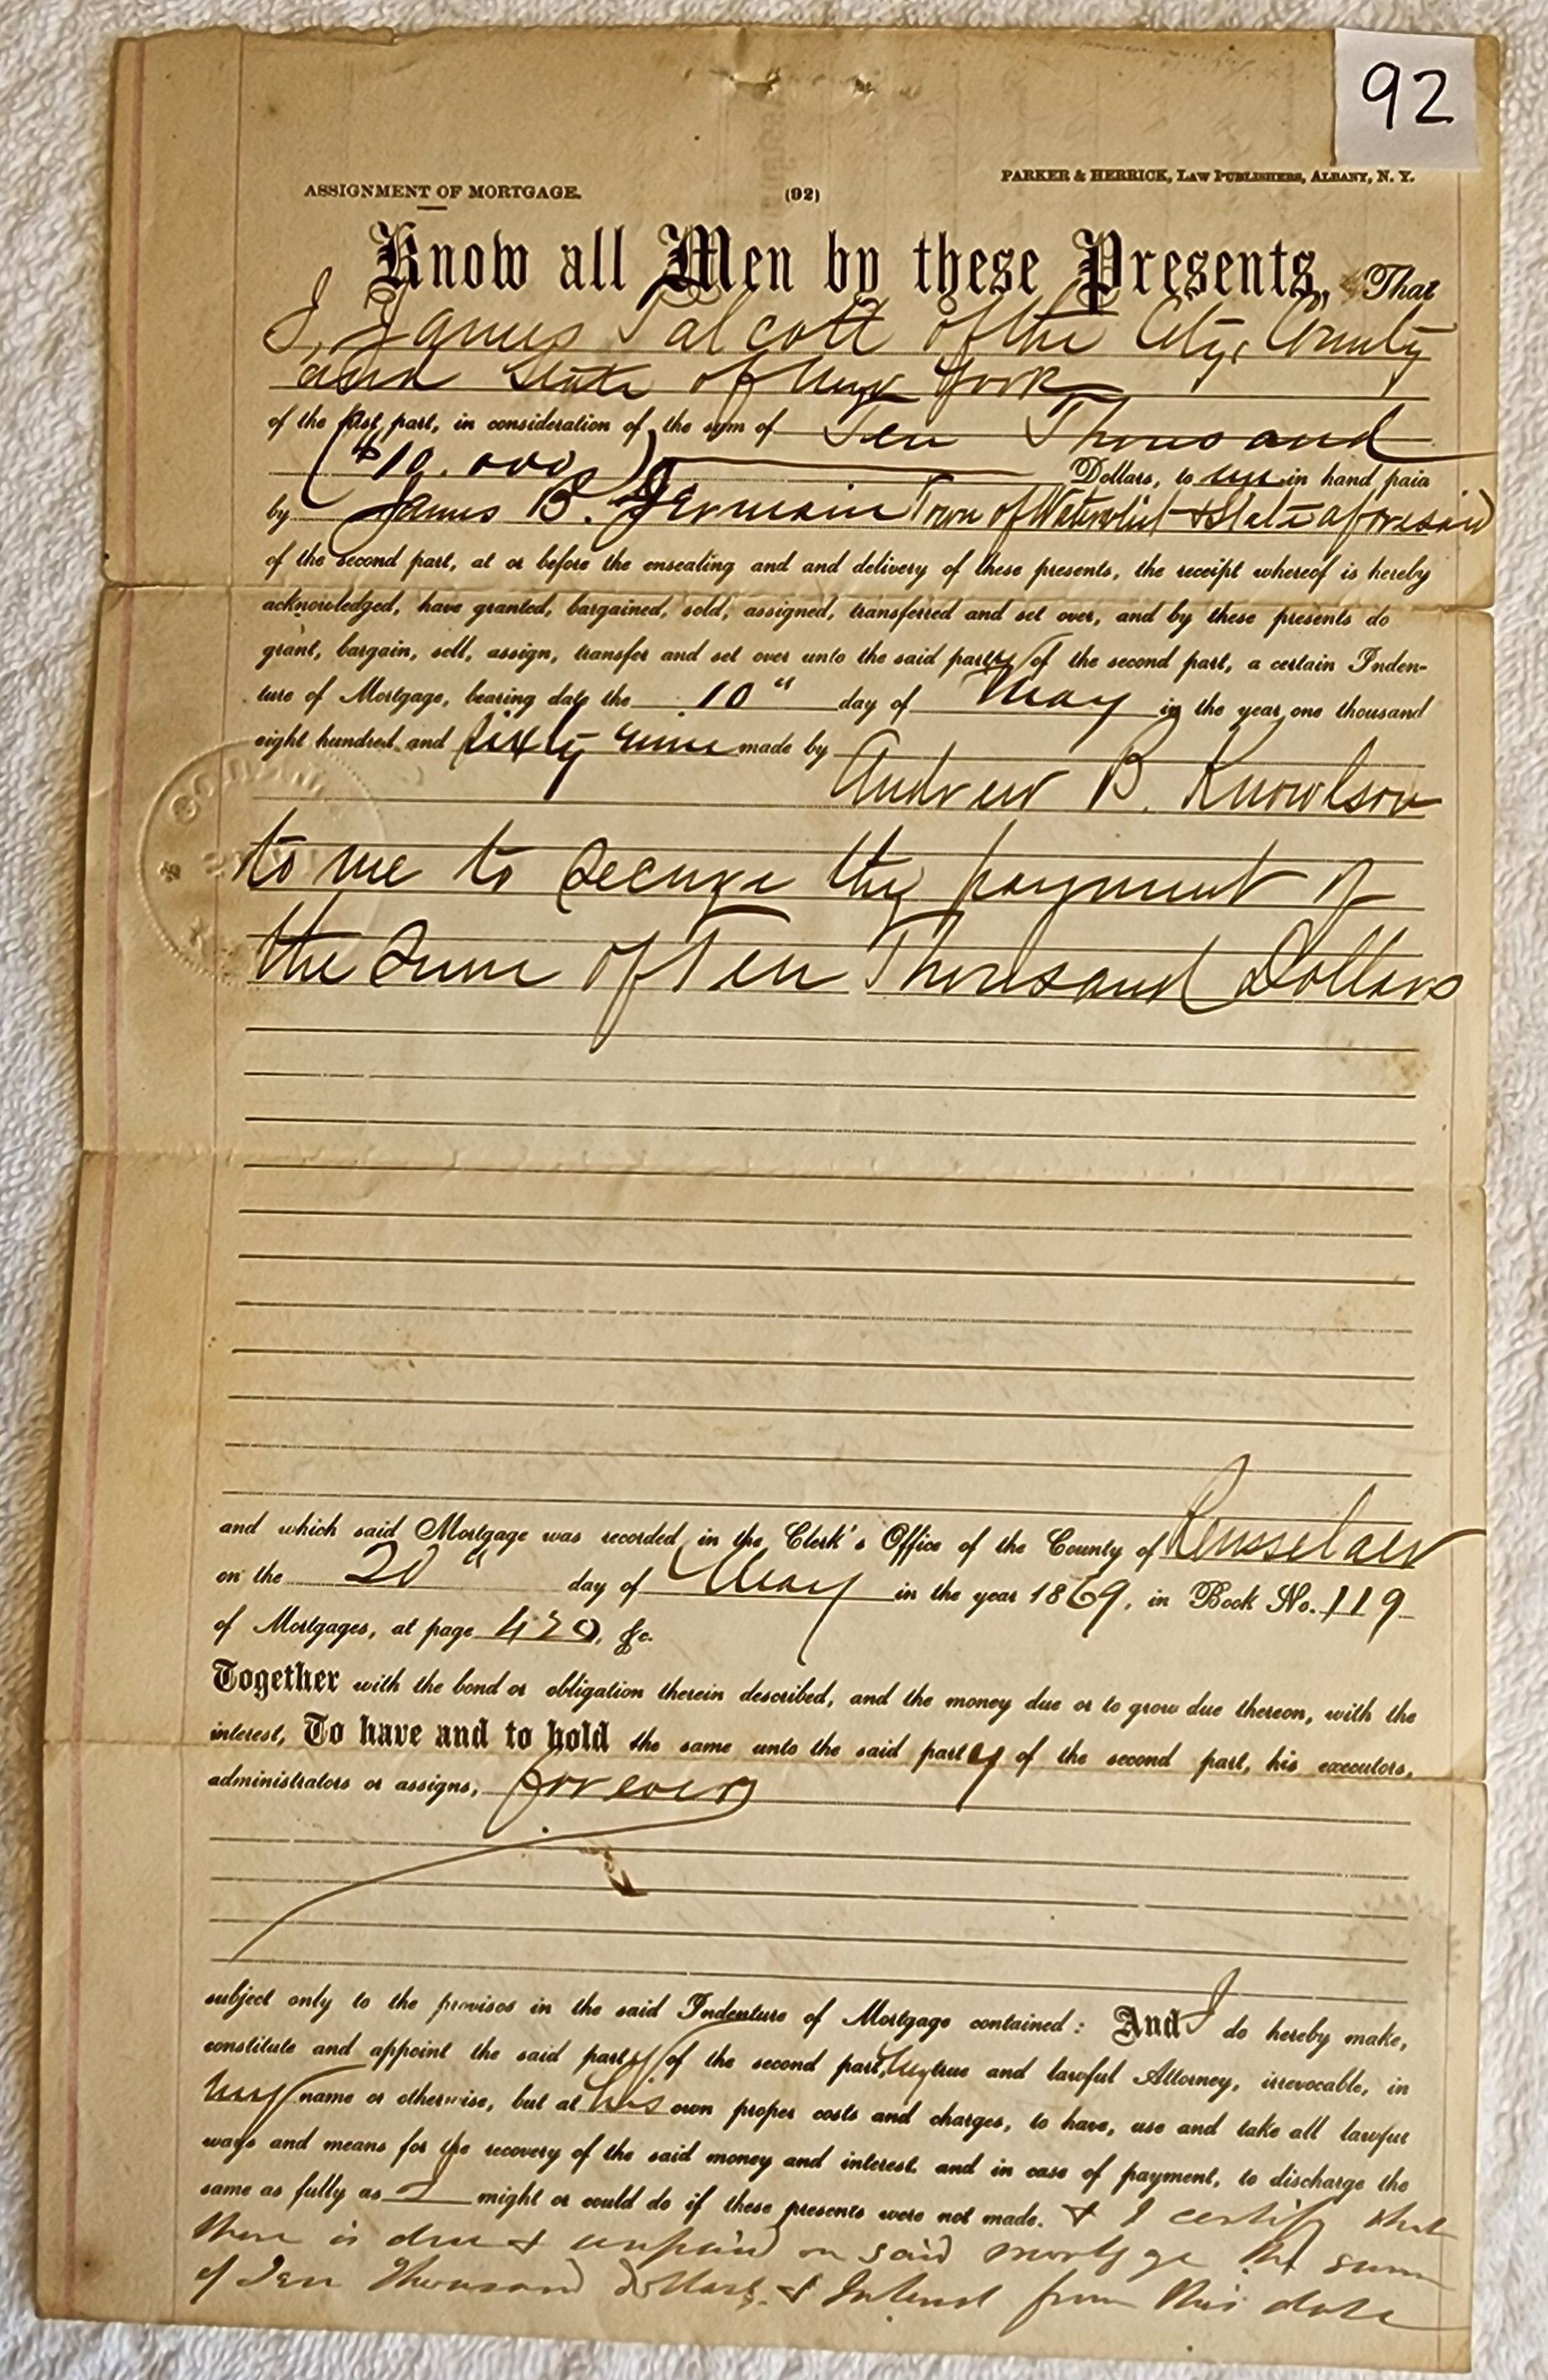 92
ASSIGNMENT OF MORTGAGE. (92) PARKER & HERRICK, LAW PUBLISHERS, ALBANY, N. Y.
Know all Men by these Presents, That
I, James Talcott of the City, County
and State of New York
of the first part, in consideration of the sum of Ten Thousand
($10.000) Dollars, to me in hand paid
by James B. Jermain Town of Watervliet & State aforesaid
of the second part, at or before the ensealing and and delivery of these presents, the receipt whereof is hereby
acknowledged, have granted, bargained, sold, assigned, transferred and set over, and by these presents do
grant, bargain, sell, assign, transfer and set over unto the said party of the second part, a certain Inden-
ture of Mortgage, bearing date the 10" day of May in the year one thousand
eight hundred and sixty nine made by
Andrew B. Knowlson
to me to secure the payment of
the sum of Ten Thousand Dollars
and which said Mortgage was recorded in the Clerk's Office of the County of Rensselaer
on the 20" day of May in the year 1869, in Book No. 119
of Mortgages, at page 420, &c.
Together with the bond or obligation therein described, and the money due or to grow due thereon, with the
interest, To have and to hold the same unto the said party of the second part, his executors,
administrators or assigns, forever
subject only to the provisos in the said Indenture of Mortgage contained: And I do hereby make,
constitute and appoint the said party of the second part, my true and lawful Attorney, irrevocable, in
my name or otherwise, but at his own proper costs and charges, to have, use and take all lawful
ways and means for the recovery of the said money and interest. and in case of payment, to discharge the
same as fully as I might or could do if these presents were not made. & I certify that
there is due & unpaid on said mortgage the sum
of Ten Thousand Dollars & Interest from this date